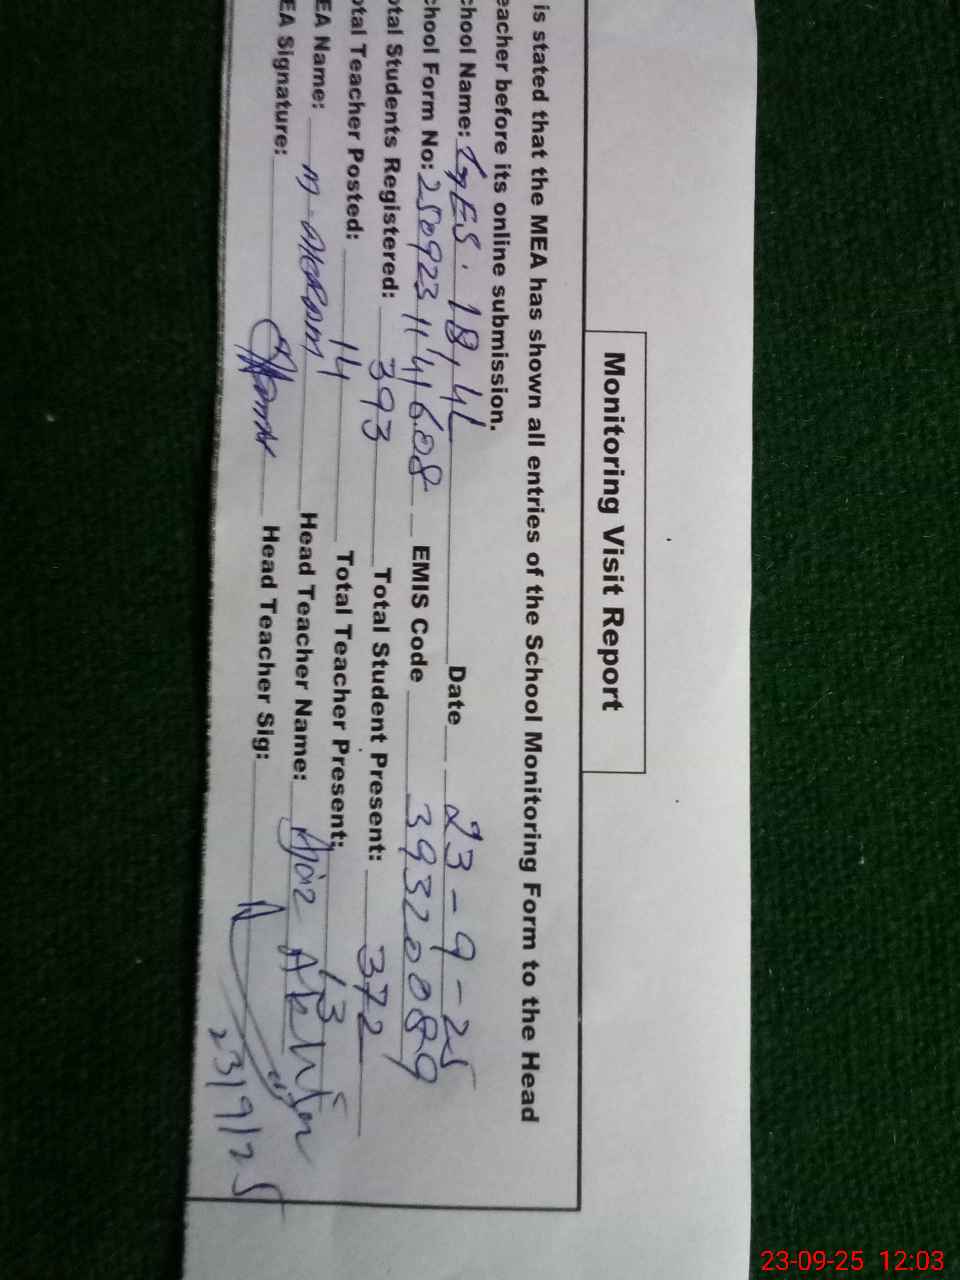 Monitoring Visit Report
is stated that the MEA has shown all entries of the School Monitoring Form to the Head
eacher before its online submission.
chool Name: GES. 18/4L Date 23-9-25
chool Form No: 2509231141608 EMIS Code 39320089
otal Students Registered: 393 Total Student Present: 372
otal Teacher Posted: 14 Total Teacher Present: 13
EA Name: M. Akram Head Teacher Name:
EA Signature: Head Teacher Sig:
23/9/25
23-09-25 12:03